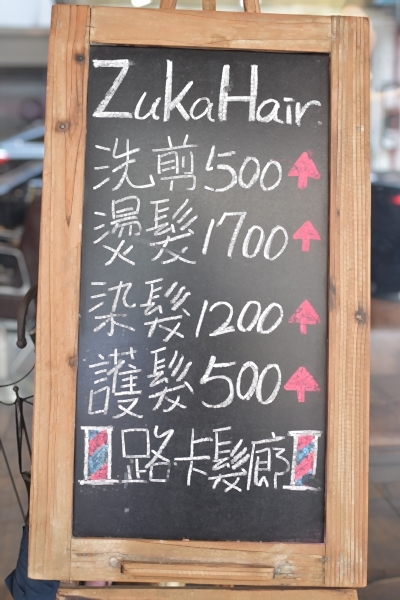 ZukaHair
洗剪500↑
燙髮1700↑
染髮1200↑
護髮500↑
路卡髮廊